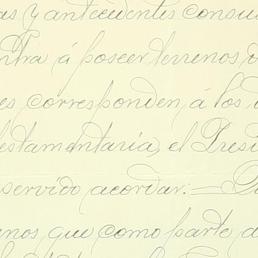 as y antecedentes consul
ntra á poseer terrenos, o
es corresponden, á los
testamentaria, el Presi
servido acordar:—
enos que como parte d